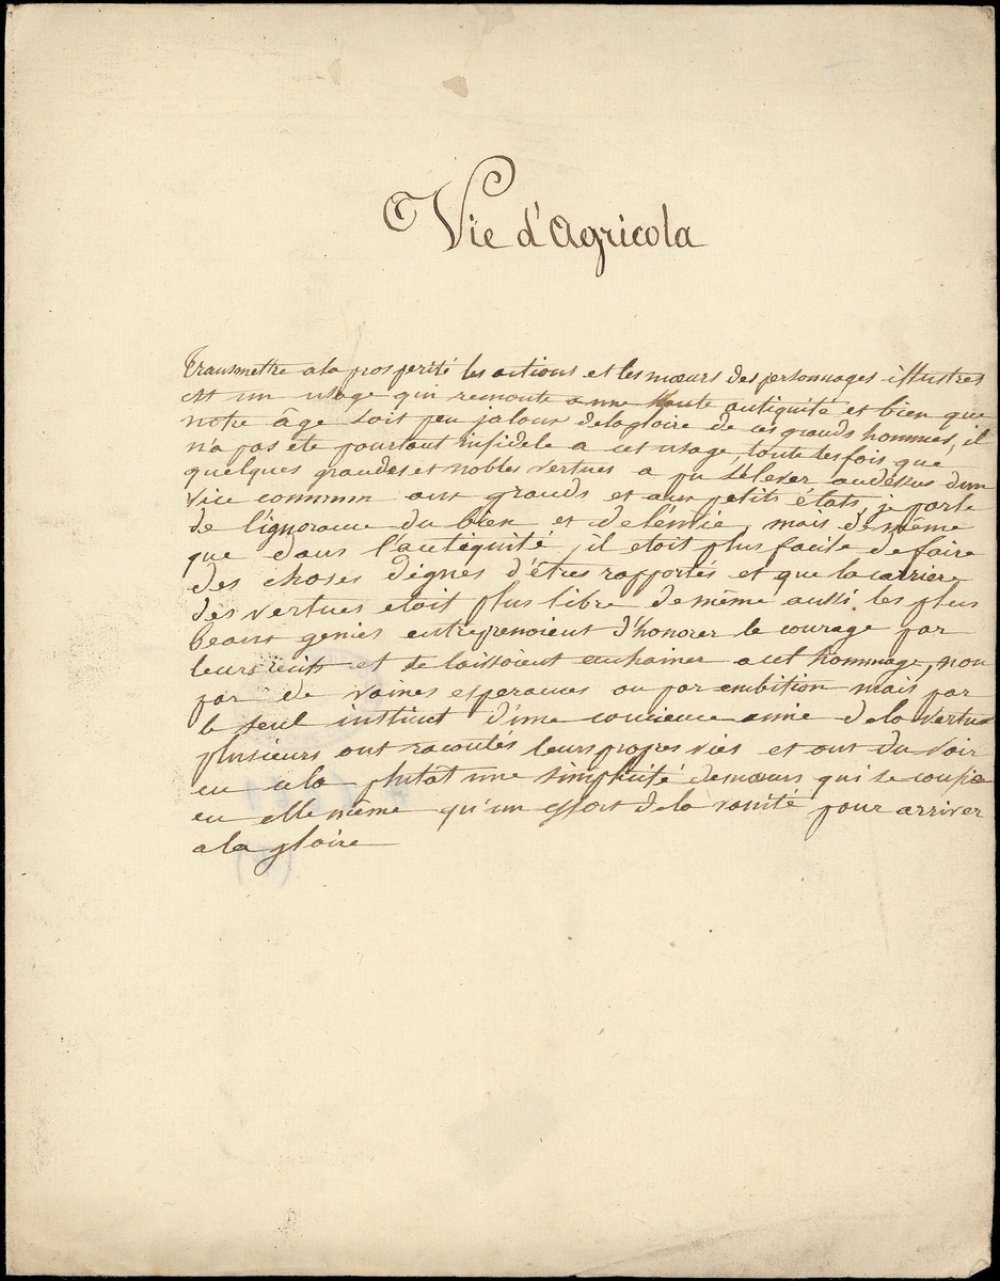 Vie d'Agricola
Transmettre a la prosperité les actions et les mœurs des personnages illustres
est un usage qui remonte a une haute antiquité et bien que
notre âge soit peu jaloux de la gloire de ces grands hommes, il
n'a pas eté pourtant infidele a cet usage, toutes les fois que
quelques grandes et nobles vertues a pu s'élever audessus d'un
vice commun aux grands et aux petits états, je parle
de l'ignorance du bien et de l'envie, mais de même
que dans l'antiquité, il etoit plus facile de faire
des choses dignes d'êtres rapportés et que la carriere
des vertues etoit plus libre de même aussi les plus
beaux genies entreprenoient d'honorer le courage par
leurs recits et se laissoient enchainer a cet hommage, non
par de vaines esperances ou par ambition mais par
le seul instinct d'une concience amie de la vertue
plusieurs ont racontés leurs propres vies et ont du voir
en cela plutot une simplicité de mœurs qui se
en elle même qu'un effort de la vanité pour arriver
a la gloire